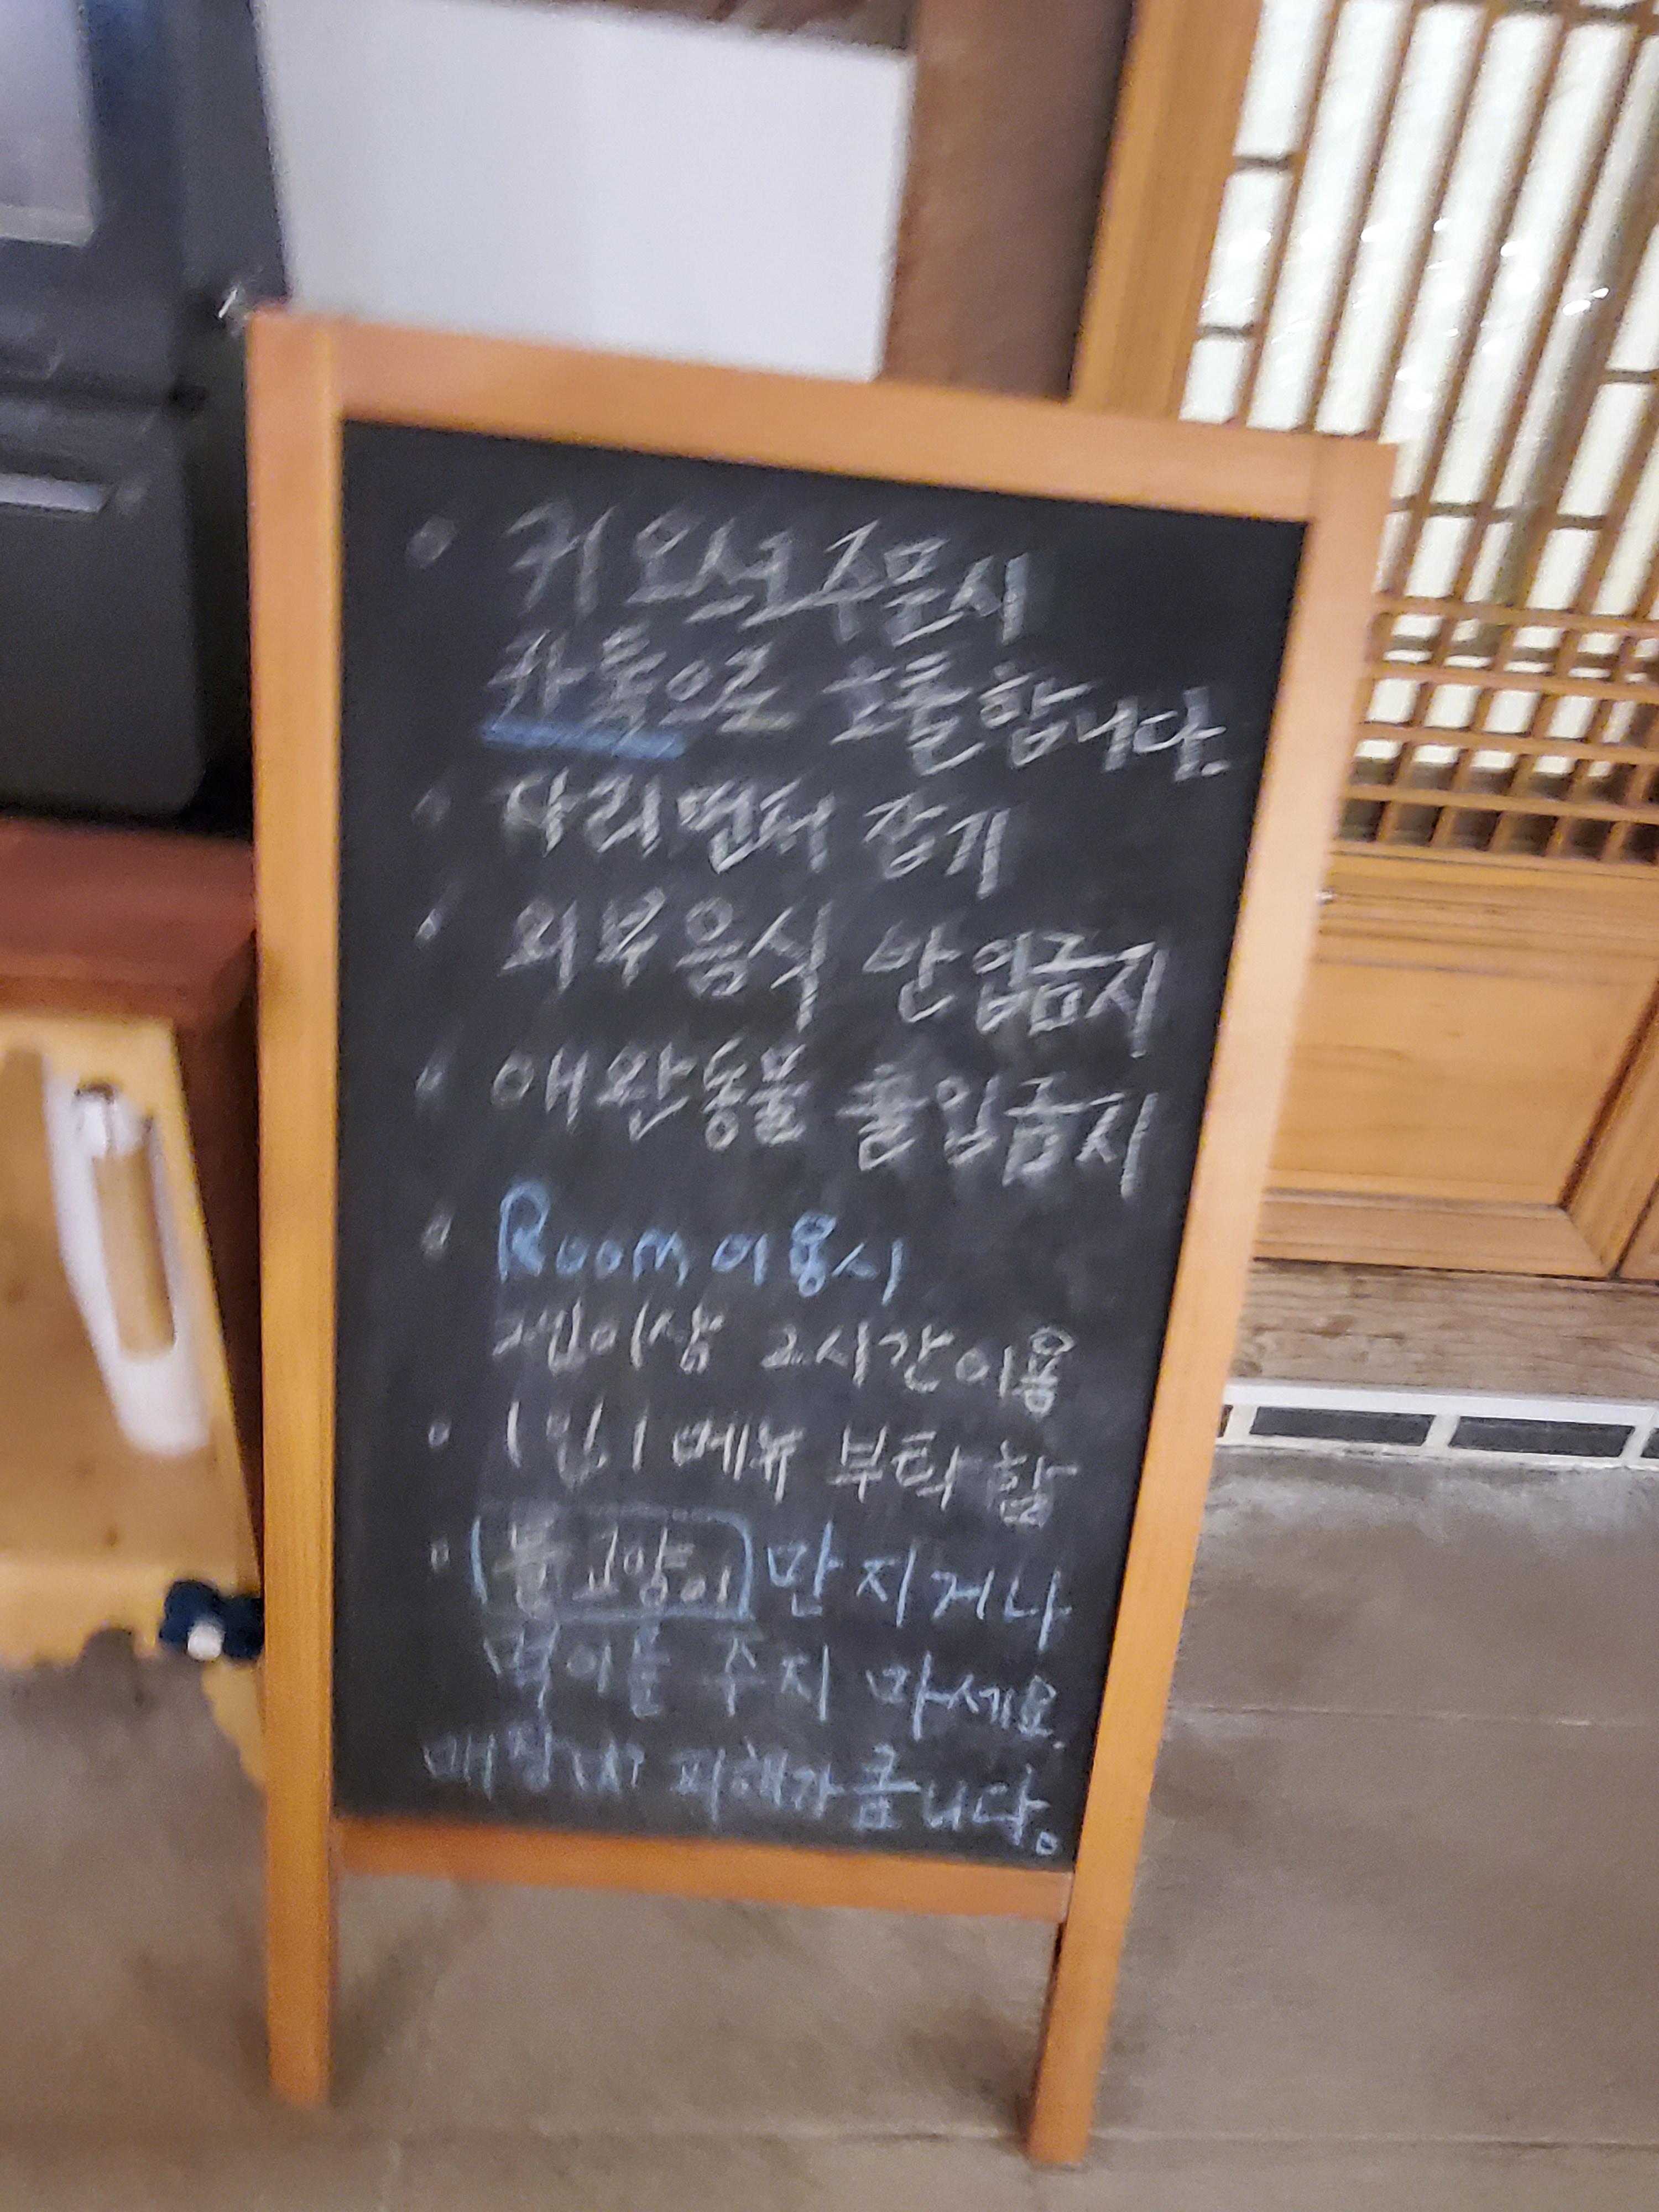 주문시
카톡으로 호출합니다.
자리먼저 잡기
외부음식 반입금지
애완동물 출입금지
Room 이용시
2인이상 2시간이용
1인 1메뉴 부탁함
들고양이 만지거나
먹이를 주지 마세요.
매장내 피해가 큽니다.